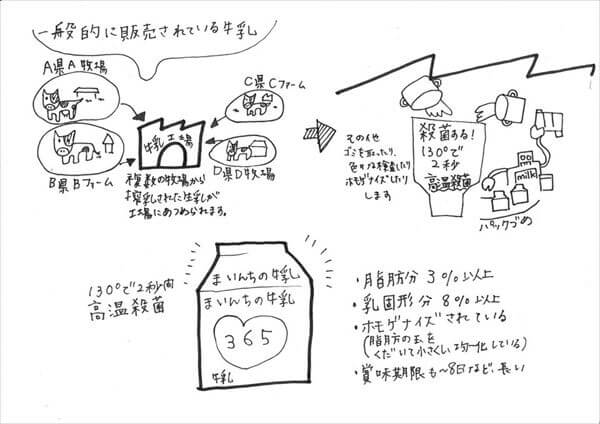 一般的に販売されている牛乳
A県A牧場
C県Cファーム
牛乳工場
B県Bファーム
D県D牧場
複数の牧場から
搾乳された生乳が
工場にあつめられます。
その他
ゴミを取ったり、
色々な検査したり
ホモゲナイズしたり
します
殺菌する!
130°で
2秒
高温殺菌
milk
パックづめ
130°で2秒間
高温殺菌
まいんちの牛乳
まいんちの牛乳
365
牛乳
・脂肪分 3%以上
・乳固形分 8%以上
・ホモゲナイズされている
(脂肪の玉を
くだいて小さくし均一化している)
・賞味期限も~8日など、長い